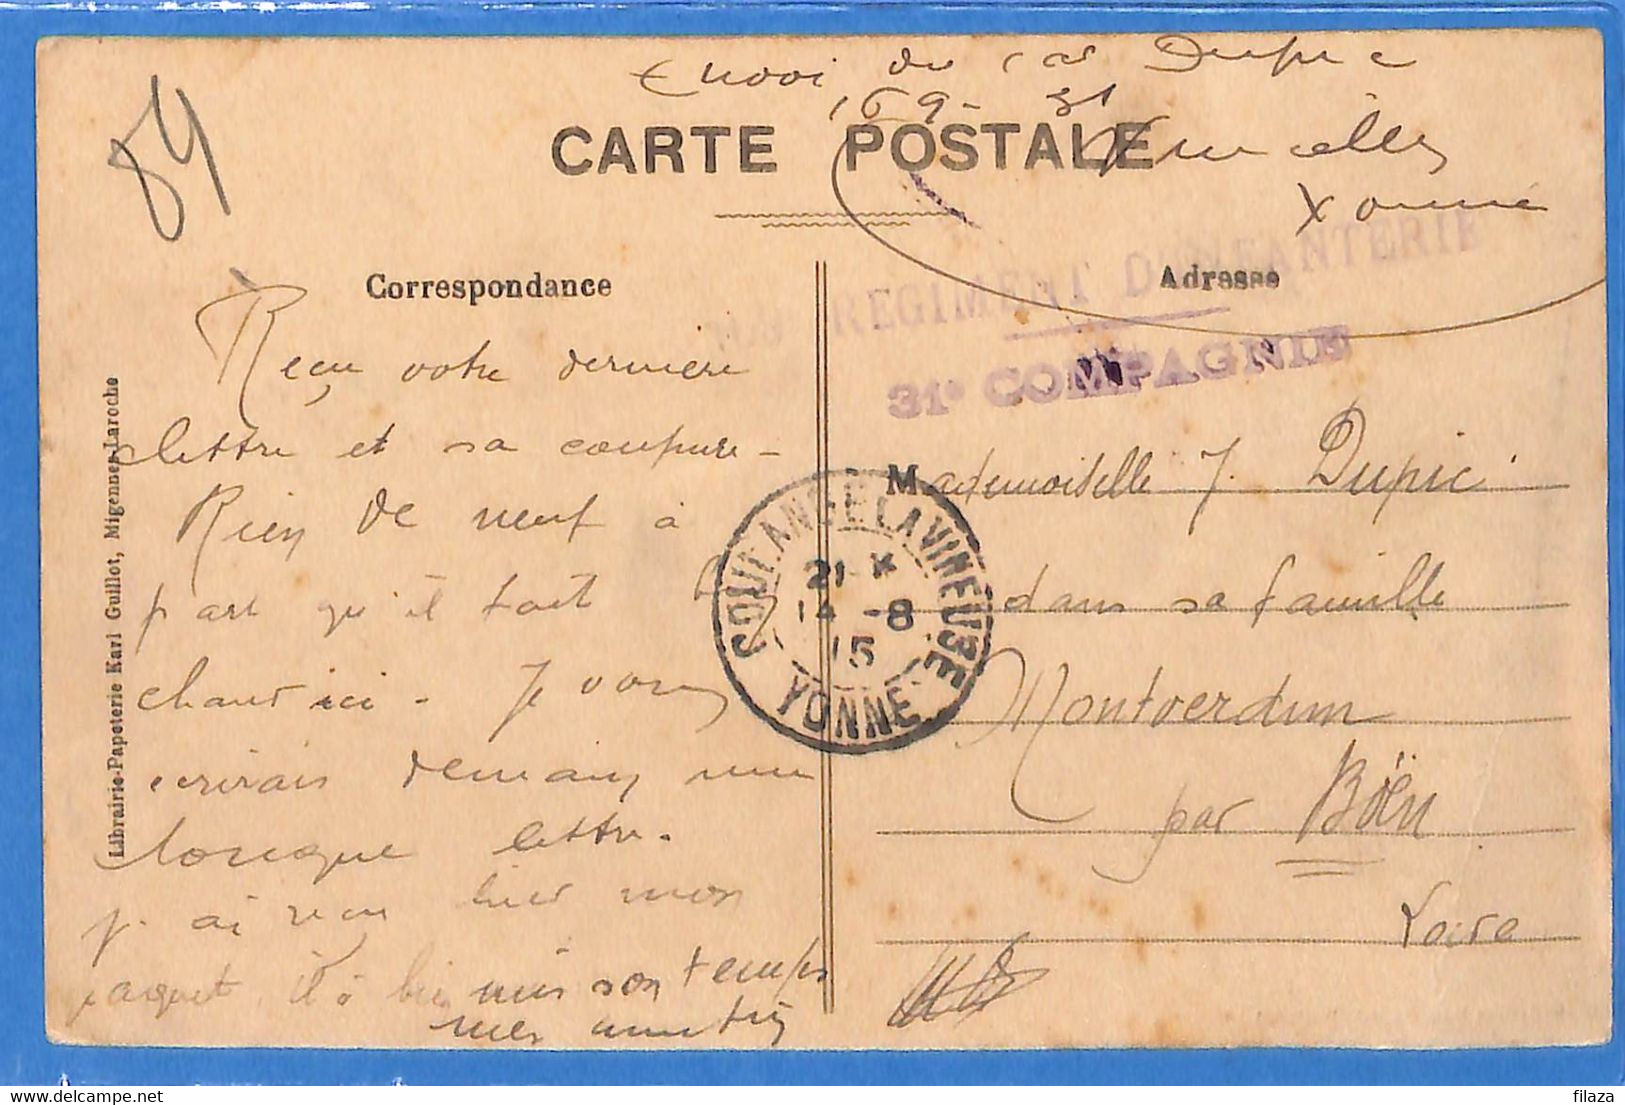 84
Envoi du Dupic
169e 31
CARTE POSTALE
Yonne
Correspondance
Adresse
REGIMENT D'INFANTERIE
31e COMPAGNIE
Reçu votre dernière
lettre et sa coupure -
Rien de neuf à
part qu'il fait
chaud ici - Je vous
écrirais demain une
longue lettre.
J'ai reçu hier mon
paquet, il a bien mis son temps
Mademoiselle J. Dupic
dans sa famille
Montverdun
par Boën
Loire
COULANGE LA VINEUSE
21 *
14 -8
15
YONNE
Librairie-Papeterie Karl Guillot, Migennes-Laroche
filaza
delcampe.net